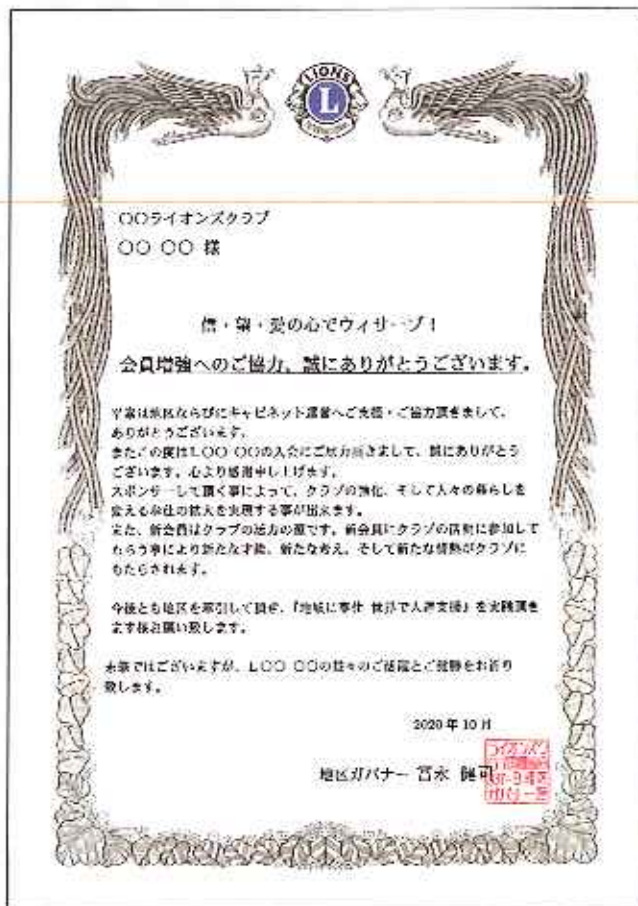 LIONS
L
INTERNATIONAL
〇〇ライオンズクラブ
〇〇 〇〇 様
信・望・愛の心でウィサーブ！
会員増強へのご協力、誠にありがとうございます。
平素は地区ならびにキャビネット運営へご支援・ご協力頂きまして、
ありがとうございます。
またこの度はL〇〇 〇〇の入会にご尽力頂きまして、誠にありがとう
ございます。心より感謝申し上げます。
スポンサーして頂く事によって、クラブの強化、そして人々の暮らしを
変える奉仕の拡大を実現する事が出来ます。
また、新会員はクラブの活力の源です。新会員にクラブの活動に参加して
もらう事により新たな才能、新たな考え、そして新たな情熱がクラブに
もたらされます。
今後とも地区を牽引して頂き、『地域に奉仕 世界で人道支援』を実践頂き
ます様お願い致します。
末筆ではございますが、L〇〇 〇〇の益々のご活躍とご健勝をお祈り
致します。
2020年10月
地区ガバナー 冨永 健司
ライオンズ
ガバナー